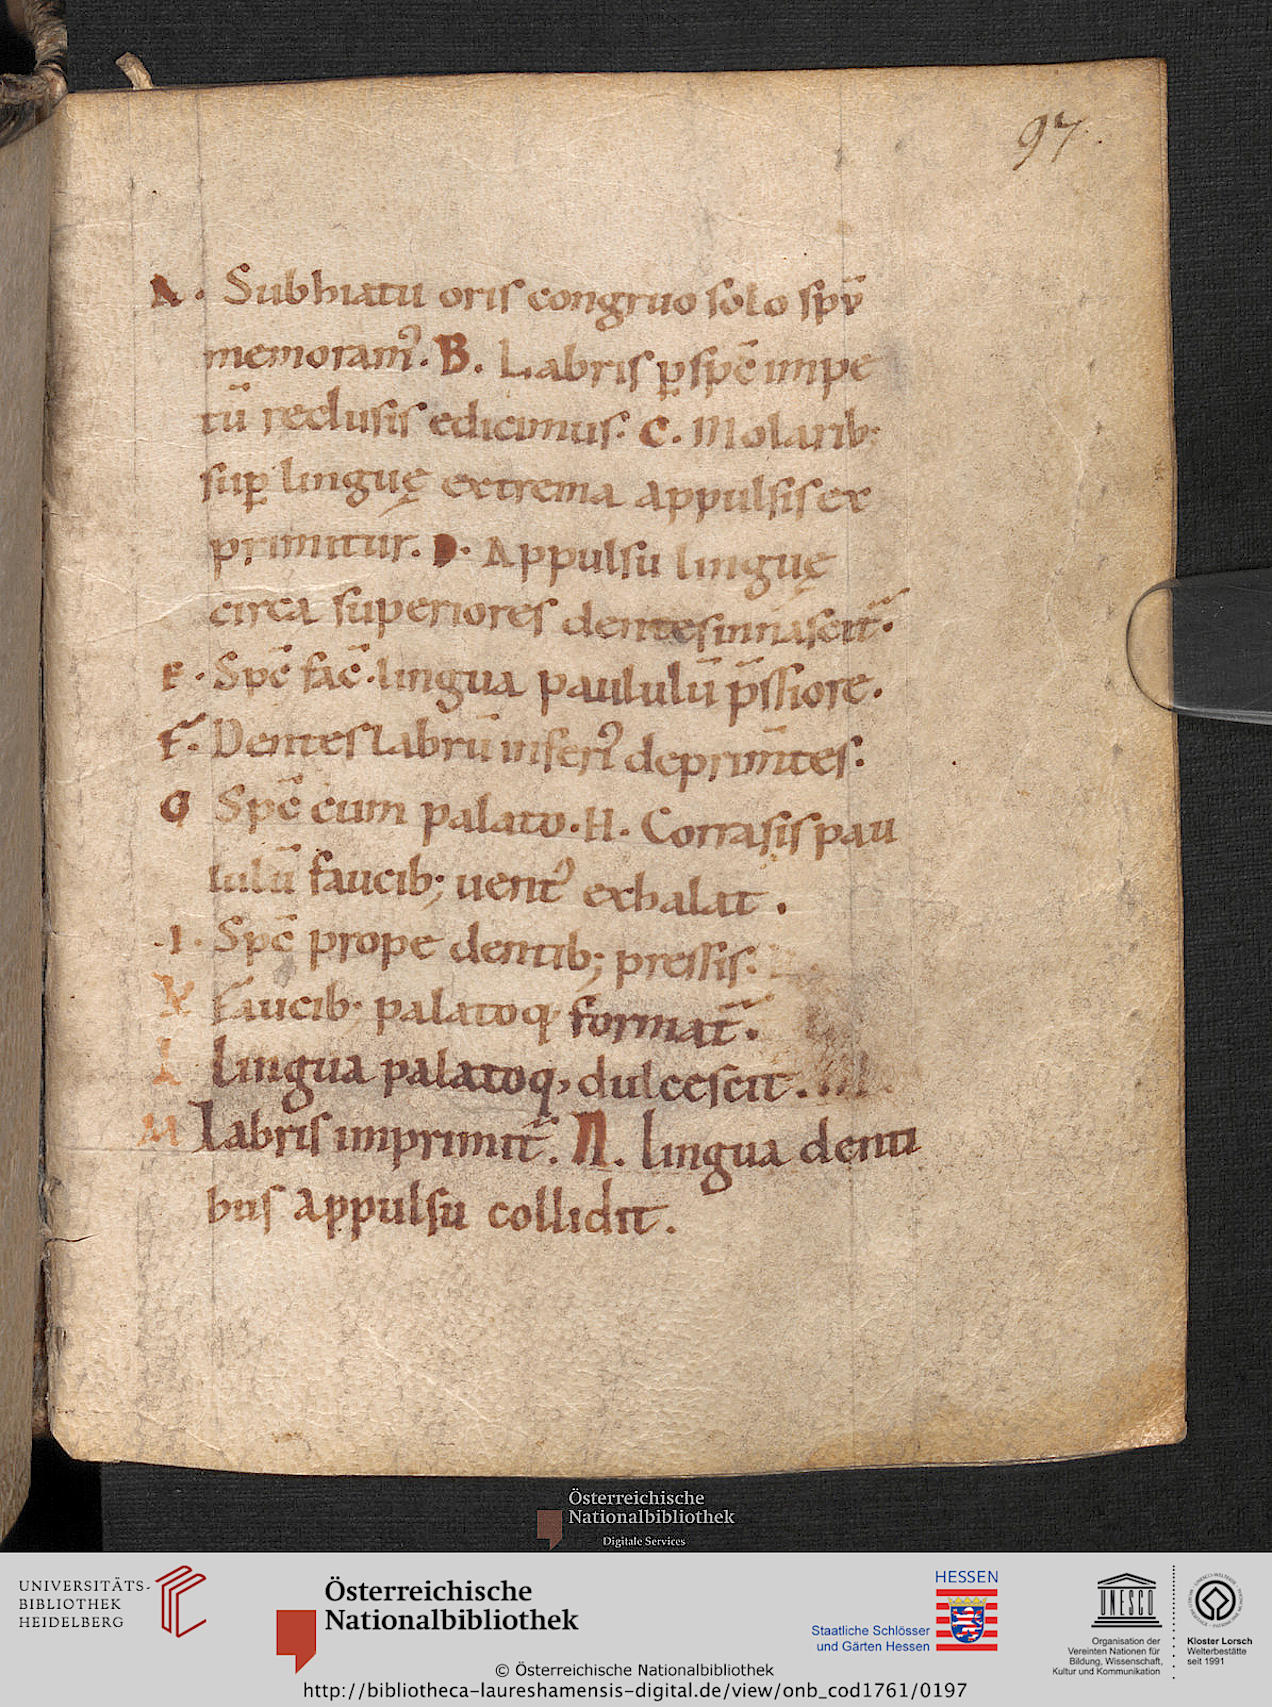 97.
A. Subhiatu oris congruo solo spū
memoramꝰ. B. Labris ꝑ spc̄ impe
tū reclusis edicimus. C. Molarib;
suꝑ linguę extrema appulsis ex
primitur. D. Appulsu linguę
circa superiores dentes innascit̄.
E. Spc̄ fac̄. lingua paululū p̄ssiore.
F. Dentes labrū inferiꝰ deprim̄tes.
G Spc̄ cum palato. H. Corrasis pau
lulū faucib; uentꝰ exhalat.
.I. Spc̄ prope dentib; pressis.
K Faucib; palatoq; format̄.
L Lingua palatoq; dulcescit. M.
M Labris imprimit̄. N. Lingua denti
bus appulsu collidit.
Österreichische
Nationalbibliothek
Digitale Services
UNIVERSITÄTS-
BIBLIOTHEK
HEIDELBERG
Österreichische
Nationalbibliothek
HESSEN
Staatliche Schlösser
und Gärten Hessen
UNESCO
Organisation der
Vereinten Nationen für
Bildung, Wissenschaft,
Kultur und Kommunikation
Kloster Lorsch
Welterbestätte
seit 1991
© Österreichische Nationalbibliothek
http://bibliotheca-laureshamensis-digital.de/view/onb_cod1761/0197